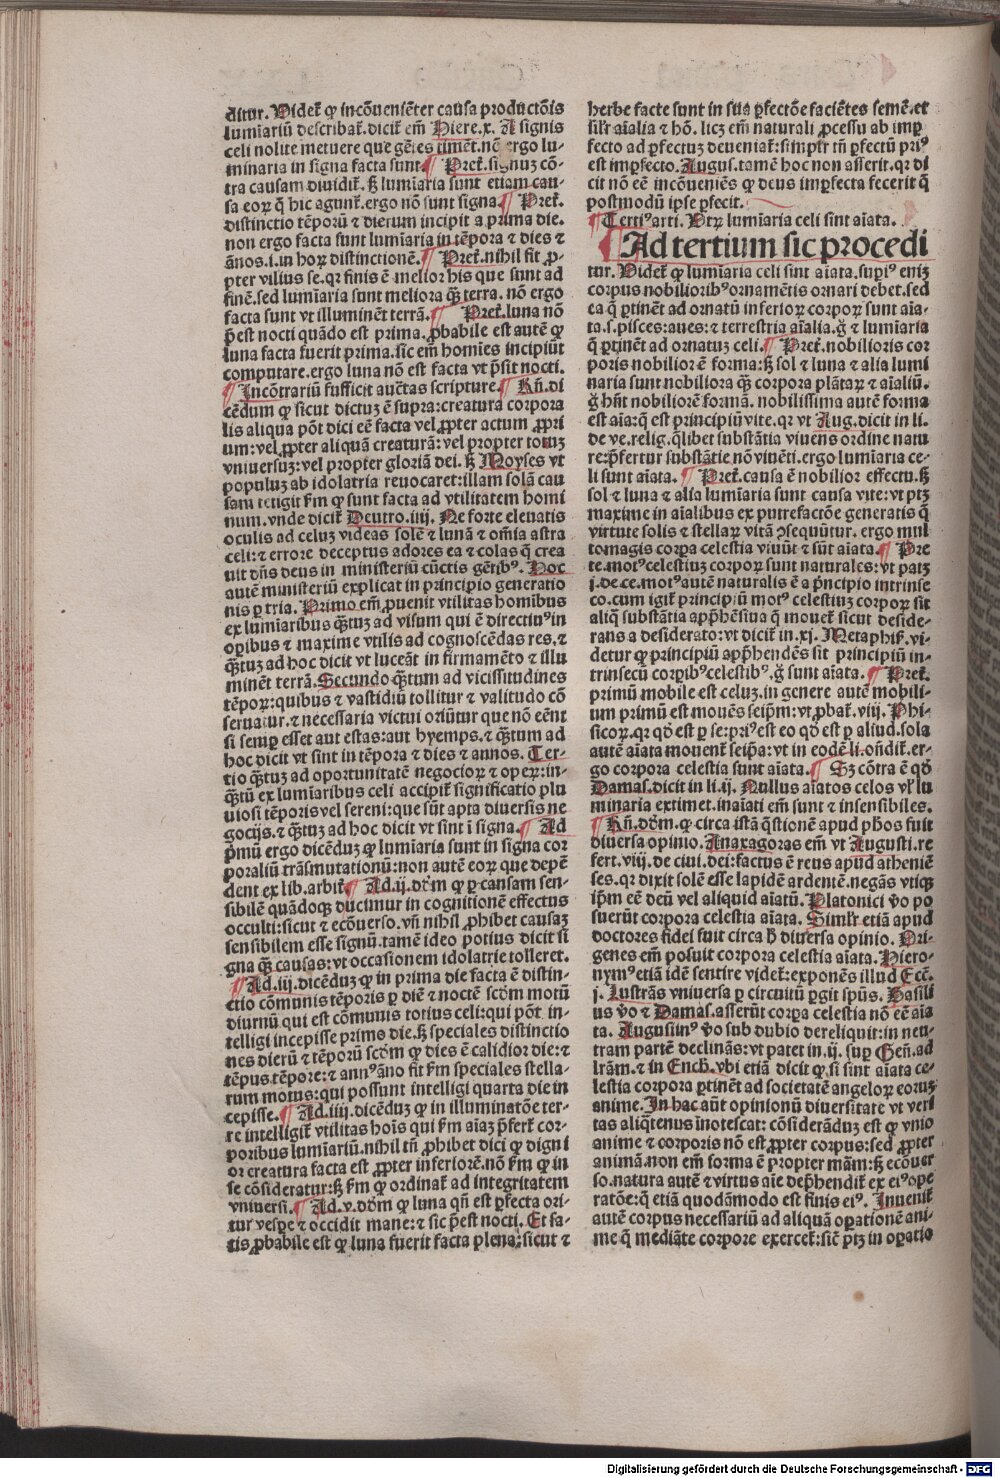 ditur. Videt᷑ qꝫ incōueniēter causa productōis
lumīariū describat᷑. dicit᷑ em̄ Hiere.x. A signis
celi nolite metuere que gētes timēt. nō ergo lu-
minaria in signa facta sunt. ¶ Pret᷑. signuꝫ cō-
tra causam diuidit᷑. sꝫ lumīaria sunt etiam cau-
sa eoꝝ q̄ hic agunt᷑. ergo nō sunt signa. ¶ Pret᷑.
distinctio tēpoꝝ ⁊ dierum incipit a prima die.
non ergo facta sunt lumīaria in tēpora ⁊ dies ⁊
ānos. i. in hoꝝ distinctionē. ¶ Pret᷑. nihil fit ꝓ-
pter vilius se. qꝛ finis ē melior his que sunt ad
finē. sed lumīaria sunt meliora q̄ꝫ terra. nō ergo
facta sunt vt illuminēt terrā. ¶ Pret᷑. luna nō
p̄est nocti quādo est prima. ꝓbabile est autē qꝫ
luna facta fuerit prima. sic em̄ homīes incipiūt
computare. ergo luna nō est facta vt p̄sit nocti.
¶ Incōtrariū sufficit auctas scripture. ¶ Rn̄. di
cēdum qꝫ sicut dictuꝫ ē supra: creatura corpora
lis aliqua pōt dici eē facta vel ꝓpter actum ꝓpri
um: vel ꝓpter aliquā creaturā: vel propter totuꝫ
vniuersuꝫ: vel propter gloriā dei. sꝫ Moyses vt
populuꝫ ab idolatria reuocaret: illam solā cau
sam tetigit s̄m qꝫ sunt facta ad vtilitatem homi
num. vnde dicit᷑ Deutro.iiij. Ne forte eleuatis
oculis ad celuꝫ videas solē ⁊ lunā ⁊ om̄ia astra
celi: ⁊ errore deceptus adores ea ⁊ colas q̄ crea
uit dn̄s deus in ministeriū cūctis gētibꝰ. Hoc
autē ministeriū explicat in principio generatio
nis ꝑ tria. Primo em̄ ꝓuenit vtilitas homībus
ex lumīaribus q̄ꝫtuꝫ ad visum qui ē directiuꝰ in
oꝑibus ⁊ maxime vtilis ad cognoscēdas res. ⁊
q̄ꝫtuꝫ ad hoc dicit vt luceāt in firmamēto ⁊ illu
minēt terrā. Secundo q̄ꝫtum ad vicissitudines
tēpoꝝ: quibus ⁊ vastidiū tollitur ⁊ valitudo cō
seruatur. ⁊ necessaria victui oriūtur que nō eēnt
si semꝑ esset aut estas: aut hyemps. ⁊ q̄ꝫtum ad
hoc dicit vt sint in tēpora ⁊ dies ⁊ annos. Ter-
tio q̄ꝫtuꝫ ad oportunitatē negocioꝝ ⁊ opeꝝ: in-
q̄ꝫtū ex lumīaribus celi accipit᷑ significatio plu
uiosi tēporis vel sereni: que sūt apta diuersis ne
gocijs. ⁊ q̄ꝫtuꝫ ad hoc dicit vt sint ī signa. ¶ Ad
p̄mū ergo dicēduꝫ qꝫ lumīaria sunt in signa cor
poraliū trāsmutationū: non autē eoꝝ que depē
dent ex lib. arbit᷑. ¶ Ad.ij. dōm qꝫ ꝑ causam sen-
sibilē quādoqꝫ ducimur in cognitionē effectus
occulti: sicut ⁊ ecōuerso. vn̄ nihil ꝓhibet causaꝫ
sensibilem esse signū. tamē ideo potius dicit si
gna q̄ꝫ causas: vt occasionem idolatrie tolleret.
¶ Ad.iij. dicēduꝫ qꝫ in prima die facta ē distin-
ctio cōmunis tēporis ꝑ diē ⁊ noctē scd̄m motū
diurnū qui est cōmunis totius celi: qui pōt in-
telligi incepisse primo die. sꝫ speciales distinctio
nes dierū ⁊ tēporū scd̄m qꝫ dies ē calidior die: ⁊
tēpus tēpore: ⁊ annꝰ āno fit s̄m speciales stella-
rum motus: qui possunt intelligi quarta die in
cepisse. ¶ Ad.iiij. dicēduꝫ qꝫ in illuminatōe ter-
re intelligit᷑ vtilitas hoīs qui s̄m aīaꝫ p̄fert᷑ cor
poribus lumīariū. nihil tn̄ ꝓhibet dici qꝫ digni
or creatura facta est ꝓpter inferiorē. nō s̄m qꝫ in
se cōsideratur: sꝫ s̄m qꝫ ordinat᷑ ad integritatem
vniuersi. ¶ Ad.v. dōm qꝫ luna qn̄ est ꝑfecta ori-
tur vesꝑe ⁊ occidit mane: ⁊ sic p̄est nocti. Et sa-
tis ꝓbabile est qꝫ luna fuerit facta plena: sicut ⁊
herbe facte sunt in sua ꝑfectōe faciētes semē. et
sil'r aīalia ⁊ hō. licꝫ em̄ naturali ꝓcessu ab imꝑ
fecto ad ꝑfectuꝫ deueniat᷑: simpl'r tn̄ ꝑfectū priꝰ
est imꝑfecto. Augus. tamē hoc non asserit. qꝛ di
cit nō eē incōueniēs qꝫ deus imꝑfecta fecerit q̄
postmodū ipse ꝑfecit.
¶ Tertiꝰ arti. Vtꝝ lumīaria celi sint aīata.
¶ Ad tertium sic procedi
tur. Videt᷑ qꝫ lumīaria celi sint aīata. supiꝰ eniꝫ
corpus nobilioribꝰ ornamētis ornari debet. sed
ea q̄ ꝑtinēt ad ornatū inferioꝝ corpoꝝ sunt aīa-
ta. s. pisces: aues: ⁊ terrestria aīalia. g̊ ⁊ lumīaria
q̄ ꝑtinēt ad ornatuꝫ celi. ¶ Pret᷑. nobilioris cor
poris nobilior ē forma: sꝫ sol ⁊ luna ⁊ alia lumi
naria sunt nobiliora q̄ꝫ corpora plātaꝝ ⁊ aīaliū.
g̊ hn̄t nobiliorē formā. nobilissima autē forma
est aīa: q̄ est principiū vite. qꝛ vt Aug. dicit in li.
de ve. relig. q̄libet substātia viuens ordine natu
re: p̄fertur substātie nō viuēti. ergo lumīaria ce-
li sunt aīata. ¶ Pret᷑. causa ē nobilior effectu. sꝫ
sol ⁊ luna ⁊ alia lumīaria sunt causa vite: vt ptꝫ
maxime in aīalibus ex putrefactōe generatis q̄
virtute solis ⁊ stellaꝝ vitā ꝯsequūtur. ergo mul
tomagis corꝑa celestia viuūt ⁊ sūt aīata. ¶ Pre
te. motꝰ celestiuꝫ corpoꝝ sunt naturales: vt patꝫ
j. de. ce. motꝰ autē naturalis ē a p̄ncipio intrinse
co. cum igit᷑ principiū motꝰ celestiuꝫ corpoꝝ sit
aliq̄ substātia app̄hēsiua q̄ mouet᷑ sicut deside-
rans a desiderato: vt dicit᷑ in.xj. Metaphis᷑. vi-
detur qꝫ principiū app̄hendēs sit principiū in-
trinsecū corꝑibꝰ celestibꝰ. g̊ sunt aīata. ¶ Pret᷑.
primū mobile est celuꝫ. in genere autē mobili-
um primū est mouēs seip̄m: vt ꝓbat᷑.viij. Phi-
sicoꝝ. qꝛ qd̄ est ꝑ se: priꝰ est eo qd̄ est ꝑ aliud. sola
autē aīata mouent᷑ seip̄a: vt in eodē li. on̄dit᷑. er-
go corpora celestia sunt aīata. ¶ Sꝫ cōtra ē qd̄
Damas. dicit in li.ij. Nullus aīatos celos vl' lu
minaria extimet. inaīati em̄ sunt ⁊ insensibiles.
¶ Rn̄. dōm. qꝫ circa istā q̄stionē apud ph̄os fuit
diuersa opinio. Anaxagoras em̄ vt Augusti. re
fert.viij. de ciui. dei: factus ē reus apud atheniē
ses. qꝛ dixit solē esse lapidē ardentē. negās vtiqꝫ
ip̄m eē deū vel aliquid aīatū. Platonici v̄o po
suerūt corpora celestia aīata. Simil'r etiā apud
doctores fidei fuit circa h̄ diuersa opinio. Ori-
genes em̄ posuit corpora celestia aīata. Hiero-
nymꝰ etiā idē sentire videt᷑: exponēs illud Eccē.
j. Lustrās vniuersa ꝑ circuitū ꝑgit sp̄us. Basili
us v̄o ⁊ Damas. asserūt corꝑa celestia nō eē aīa
ta. Augustinꝰ v̄o sub dubio dereliquit: in neu-
tram partē declinās: vt patet in.ij. suꝑ Gen̄. ad
lr̄am. ⁊ in Ench. vbi etiā dicit qꝫ si sint aīata ce-
lestia corpora ꝑtinēt ad societatē angeloꝝ eoruꝫ
anime. In hac aūt opinionū diuersitate vt veri
tas aliq̄tenus īnotescat: cōsiderāduꝫ est qꝫ vnio
anime ⁊ corporis nō est ꝓpter corpus: sed ꝓpter
animā. non em̄ forma ē propter mām: sꝫ ecōuer
so. natura autē ⁊ virtus aīe dep̄hendit᷑ ex eiꝰ ope
ratōe: q̄ etiā quodāmodo est finis eiꝰ. Inuenit᷑
autē corpus necessariū ad aliquā oꝑationē ani-
me q̄ mediāte corpore exercet᷑: sic̄ ptꝫ in oꝑatio
Digitalisierung gefördert durch die Deutsche Forschungsgemeinschaft - DFG